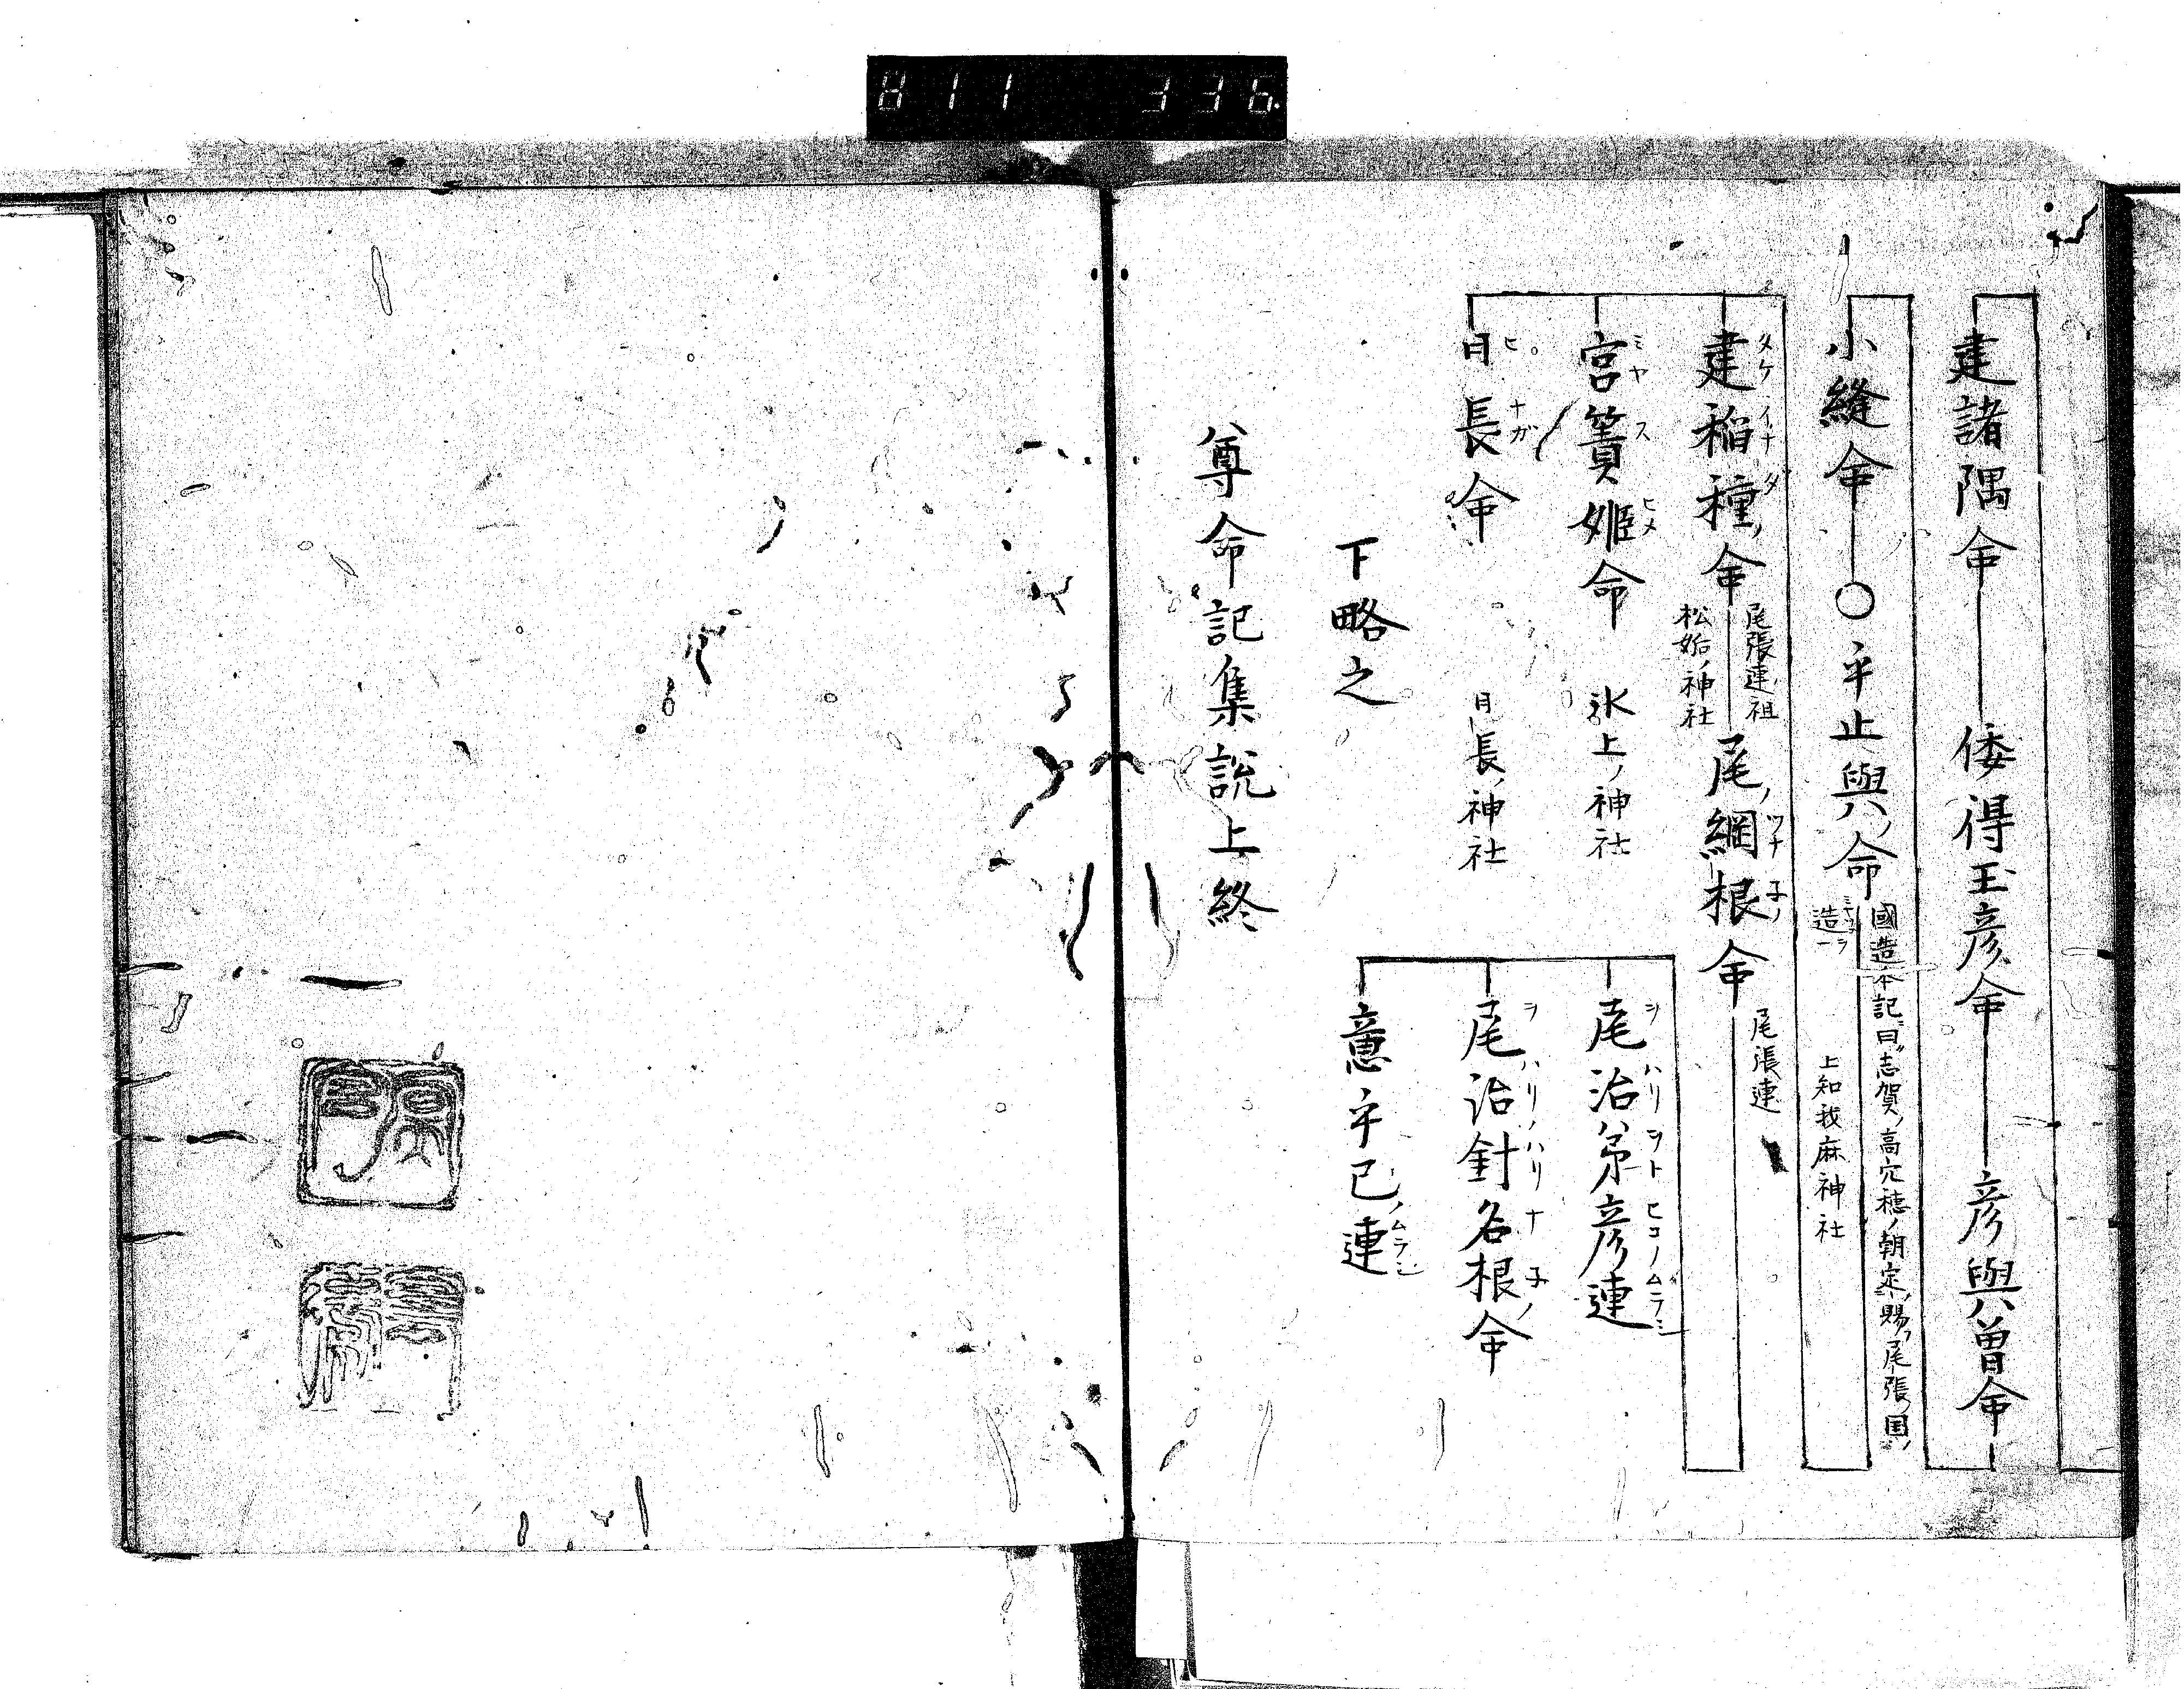 811 336.
建諸隅命 倭得玉彦命 彦與曽命
小縫命 〇乎止與命
國造本記曰志賀高穴穂朝定賜尾張国
造
上知我麻神社
建稲種命 タケイナダノ
尾張連祖
松姤ノ神社
尾綱根命 ノツナ子ノ
尾張連
宮簀姫命 ミヤスヒメ
氷上ノ神社
日長命 ヒナガ
日長ノ神社
尾治弟彦連 ヲハリヲトヒコノムラシ
尾治針名根命 ヲハリノハリナ子ノ
意乎己連 ノムラジ
下略之
尊命記集説上終